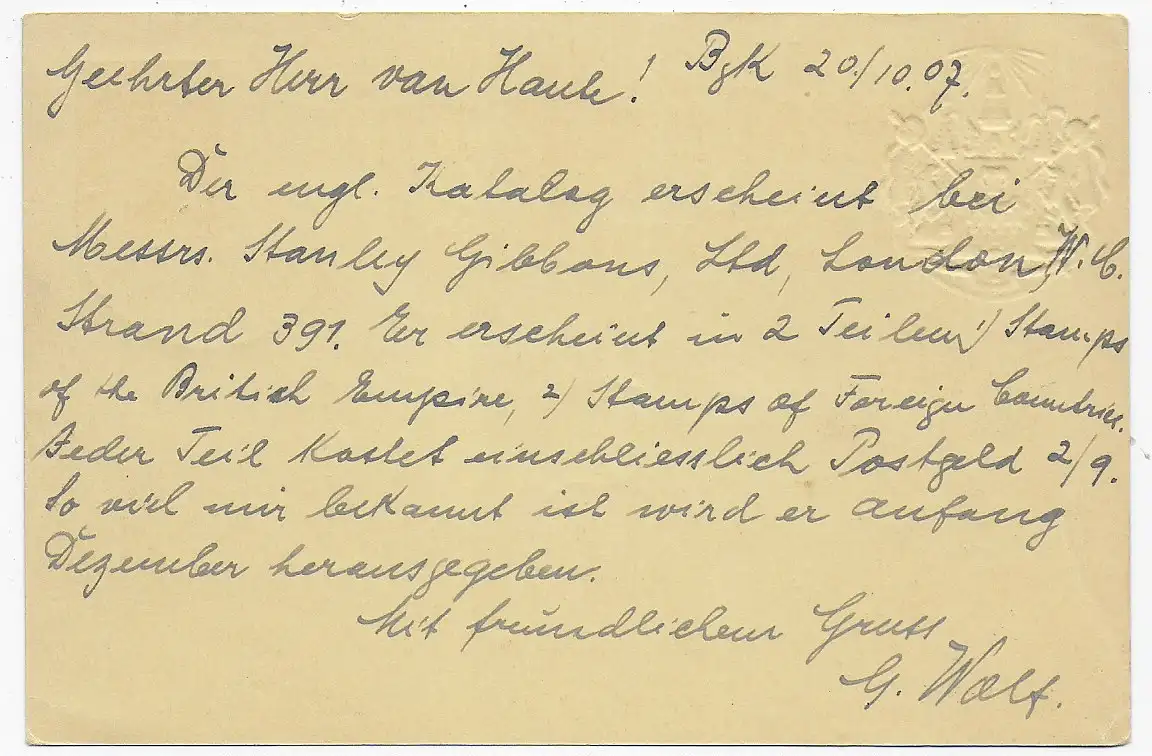 Geehrter Herr van Haute! Bgk 20/10.07.
Der engl. Katalog erscheint bei
Messrs. Stanley Gibbons, Ltd, London, W.C.
Strand 391. Er erscheint in 2 Teilen 1) Stamps
of the British Empire, 2) Stamps of Foreign Countries.
Jeder Teil kostet einschliesslich Postgeld 2/9.
So viel mir bekannt ist wird er anfang
Dezember herausgegeben.
Mit freundlichem Gruss
G. Wolf.